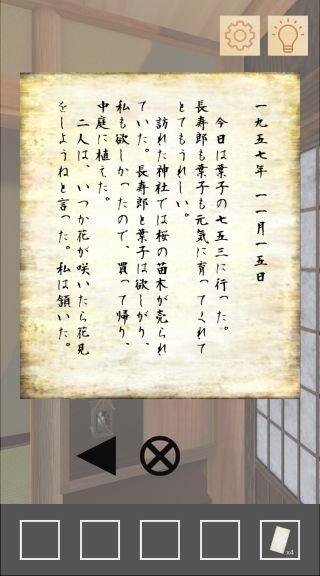 一九五七年　一一月一五日
今日は葉子の七五三に行った。
長寿郎も葉子も元気に育ってくれて
とてもうれしい。
訪れた神社では桜の苗木が売られ
ていた。長寿郎と葉子は欲しがり、
私も欲しかったので、買って帰り、
中庭に植えた。
二人は、いつか花が咲いたら花見
をしようねと言った。私は頷いた。
x4